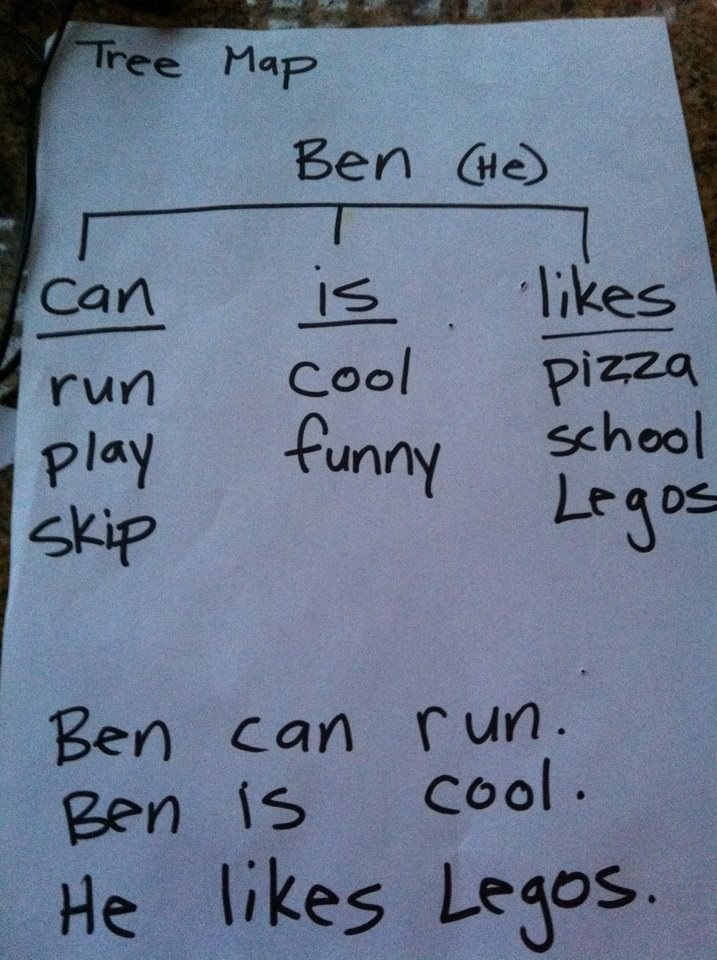 Tree Map
Ben (He)
can is likes
run cool pizza
play funny school
skip Legos
Ben can run.
Ben is cool.
He likes Legos.